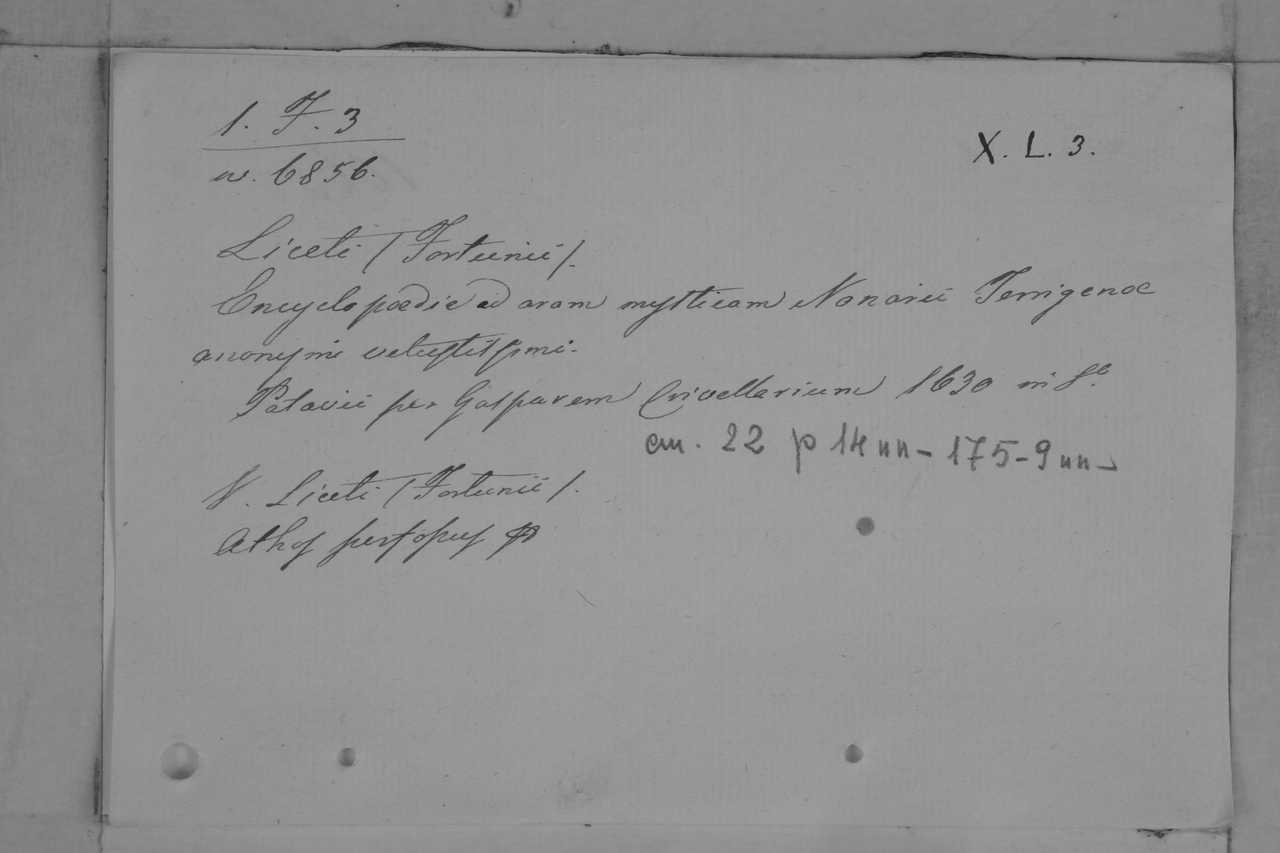 1. F. 3
X. L. 3.
n. 6856.
Liceti (Fortunii).
Encyclopædie ad aram mysticam Nonarii Terrigenæ
anonymi vetustissimi.
Patavii per Gasparem Crivellarium 1630 in 8.º
cm. 22 p 14 nn - 175 - 9 nn -
V. Liceti (Fortunii).
Athos perfossus